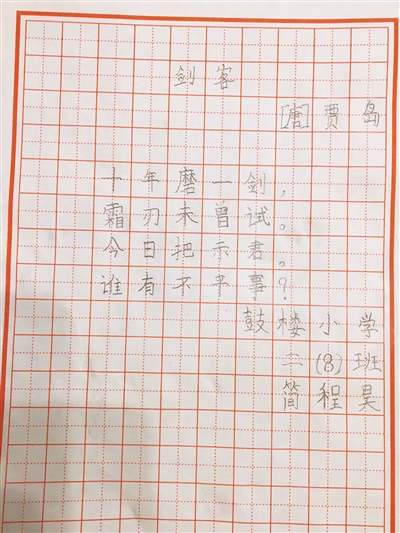 剑客
[唐]贾岛
十年磨一剑，
霜刃未曾试。
今日把示君。
谁有不平事？
鼓楼小学
二(8)班
简程昊